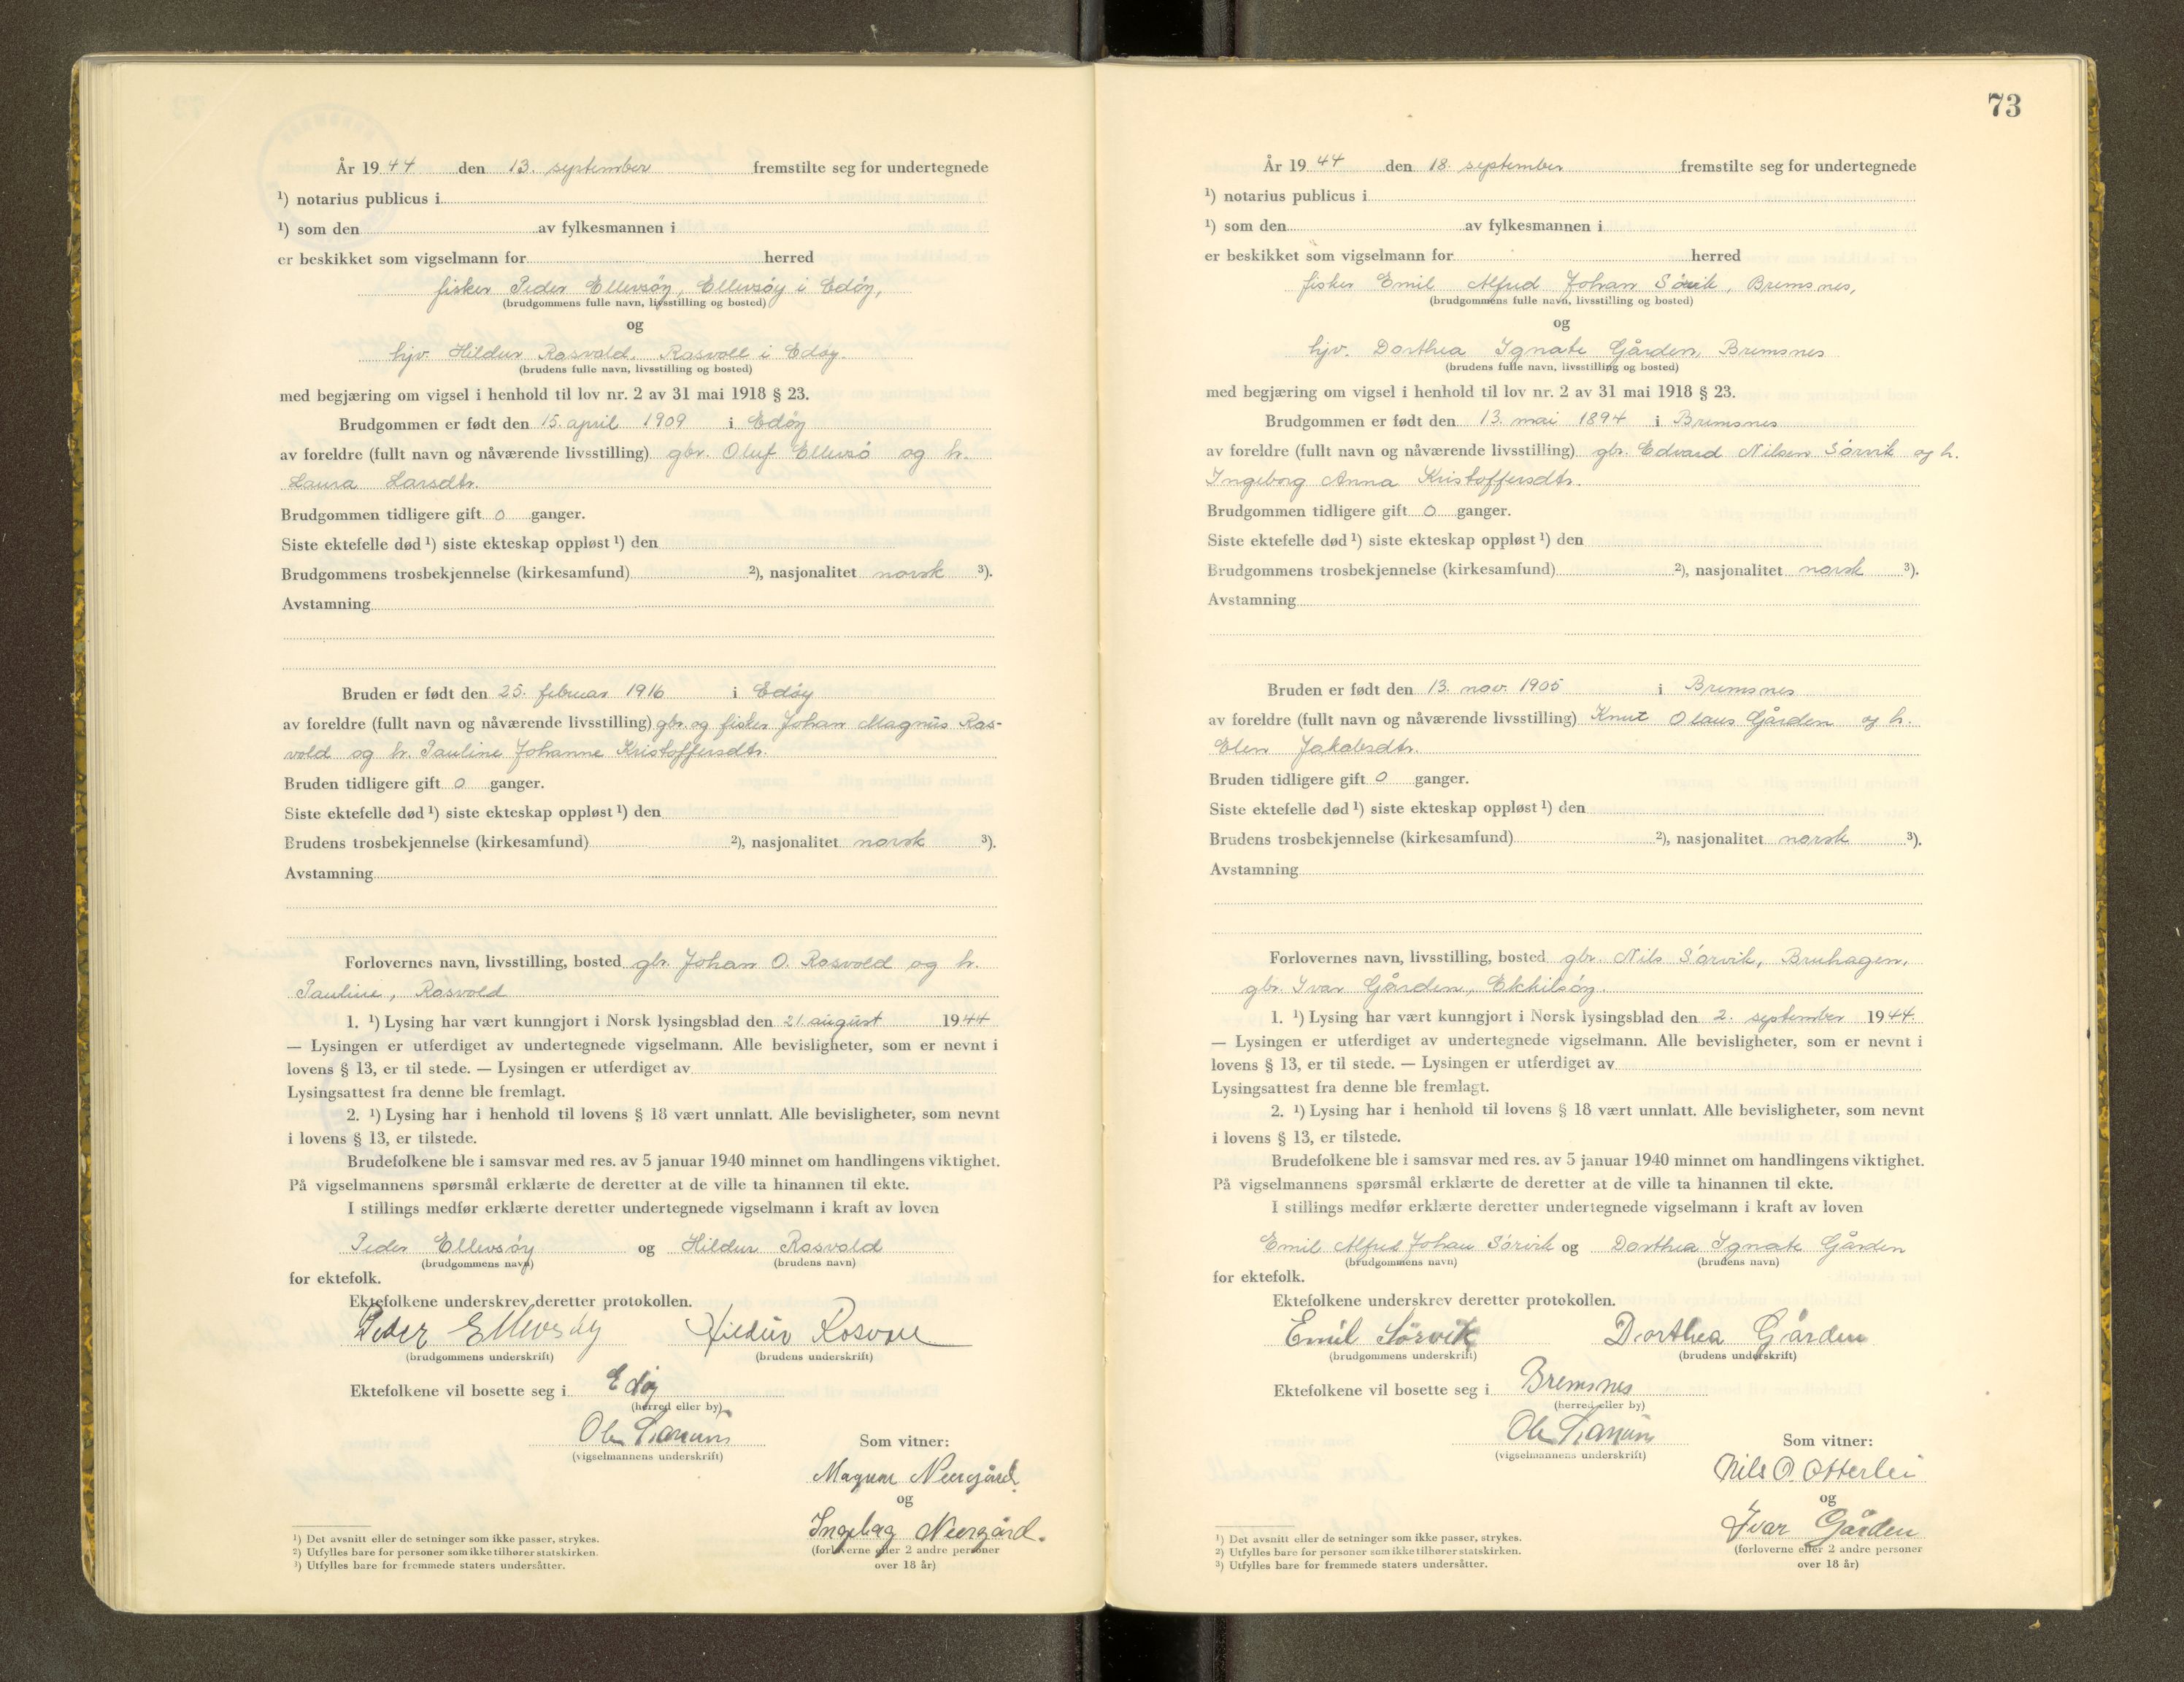 År 1944 den 13. september fremstilte seg for undertegnede
¹) notarius publicus i
¹) som den av fylkesmannen i
er beskikket som vigselmann for herred
fisker Peder Ellevsøy, Ellevsøy i Edøy,
(brudgommens fulle navn, livsstilling og bosted)
og
hjv. Hildur Rosvold, Rosvoll i Edøy.
(brudens fulle navn, livsstilling og bosted)
med begjæring om vigsel i henhold til lov nr. 2 av 31 mai 1918 § 23.
Brudgommen er født den 15. april 1909 i Edøy
av foreldre (fullt navn og nåværende livsstilling) gbr. Oluf Ellevsø og h.
Laura Larsdtr.
Brudgommen tidligere gift 0 ganger.
Siste ektefelle død ¹) siste ekteskap oppløst ¹) den
Brudgommens trosbekjennelse (kirkesamfund) ²), nasjonalitet norsk ³).
Avstamning
Bruden er født den 25. februar 1916 i Edøy
av foreldre (fullt navn og nåværende livsstilling) gbr. og fisker Johan Magnus Ros-
vold og h. Pauline Johanne Kristoffersdtr.
Bruden tidligere gift 0 ganger.
Siste ektefelle død ¹) siste ekteskap oppløst ¹) den
Brudens trosbekjennelse (kirkesamfund) ²), nasjonalitet norsk ³).
Avstamning
Forlovernes navn, livsstilling, bosted gbr. Johan O. Rosvold og h.
Pauline, Rosvold
1. ¹) Lysing har vært kunngjort i Norsk lysingsblad den 21. august 1944
— Lysingen er utferdiget av undertegnede vigselmann. Alle bevisligheter, som er nevnt i
lovens § 13, er til stede. — Lysingen er utferdiget av
Lysingsattest fra denne ble fremlagt.
2. ¹) Lysing har i henhold til lovens § 18 vært unnlatt. Alle bevisligheter, som nevnt
i lovens § 13, er tilstede.
Brudefolkene ble i samsvar med res. av 5 januar 1940 minnet om handlingens viktighet.
På vigselmannens spørsmål erklærte de deretter at de ville ta hinannen til ekte.
I stillings medfør erklærte deretter undertegnede vigselmann i kraft av loven
Peder Ellevsøy og Hildur Rosvold
(brudgommens navn) (brudens navn)
for ektefolk.
Ektefolkene underskrev deretter protokollen.
Peder Ellevsøy Hildur Rosvoll
(brudgommens underskrift) (brudens underskrift)
Ektefolkene vil bosette seg i Edøy
(herred eller by)
Ole
(vigselmannens underskrift) Som vitner:
Magnar Neergård.
og
Ingebjørg Neergård.
(forloverne eller 2 andre personer
over 18 år)
¹) Det avsnitt eller de setninger som ikke passer, strykes.
²) Utfylles bare for personer som ikke tilhører statskirken.
³) Utfylles bare for fremmede staters undersåtter.
73
År 1944 den 18. september fremstilte seg for undertegnede
¹) notarius publicus i
¹) som den av fylkesmannen i
er beskikket som vigselmann for herred
fisker Emil Alfred Johan Sørvik, Bremsnes,
(brudgommens fulle navn, livsstilling og bosted)
og
hjv. Dorthea Ignate Gården, Bremsnes
(brudens fulle navn, livsstilling og bosted)
med begjæring om vigsel i henhold til lov nr. 2 av 31 mai 1918 § 23.
Brudgommen er født den 13. mai 1894 i Bremsnes
av foreldre (fullt navn og nåværende livsstilling) gbr. Edvard Nilsen Sørvik og h.
Ingeborg Anna Kristoffersdtr.
Brudgommen tidligere gift 0 ganger.
Siste ektefelle død ¹) siste ekteskap oppløst ¹) den
Brudgommens trosbekjennelse (kirkesamfund) ²), nasjonalitet norsk ³).
Avstamning
Bruden er født den 13. nov. 1905 i Bremsnes
av foreldre (fullt navn og nåværende livsstilling) Knut Olaus Gården og h.
Elen Jakobsdtr.
Bruden tidligere gift 0 ganger.
Siste ektefelle død ¹) siste ekteskap oppløst ¹) den
Brudens trosbekjennelse (kirkesamfund) ²), nasjonalitet norsk ³).
Avstamning
Forlovernes navn, livsstilling, bosted gbr. Nils Sørvik, Bruhagen,
gbr. Ivar Gården, Ekkilsøy.
1. ¹) Lysing har vært kunngjort i Norsk lysingsblad den 2. september 1944.
— Lysingen er utferdiget av undertegnede vigselmann. Alle bevisligheter, som er nevnt i
lovens § 13, er til stede. — Lysingen er utferdiget av
Lysingsattest fra denne ble fremlagt.
2. ¹) Lysing har i henhold til lovens § 18 vært unnlatt. Alle bevisligheter, som nevnt
i lovens § 13, er tilstede.
Brudefolkene ble i samsvar med res. av 5 januar 1940 minnet om handlingens viktighet.
På vigselmannens spørsmål erklærte de deretter at de ville ta hinannen til ekte.
I stillings medfør erklærte deretter undertegnede vigselmann i kraft av loven
Emil Alfred Johan Sørvik og Dorthea Ignate Gården
(brudgommens navn) (brudens navn)
for ektefolk.
Ektefolkene underskrev deretter protokollen.
Emil Sørvik Dorthea Gården
(brudgommens underskrift) (brudens underskrift)
Ektefolkene vil bosette seg i Bremsnes
(herred eller by)
Ole
(vigselmannens underskrift) Som vitner:
Nils O. Otterlei
og
Ivar Gården
(forloverne eller 2 andre personer
over 18 år)
¹) Det avsnitt eller de setninger som ikke passer, strykes.
²) Utfylles bare for personer som ikke tilhører statskirken.
³) Utfylles bare for fremmede staters undersåtter.